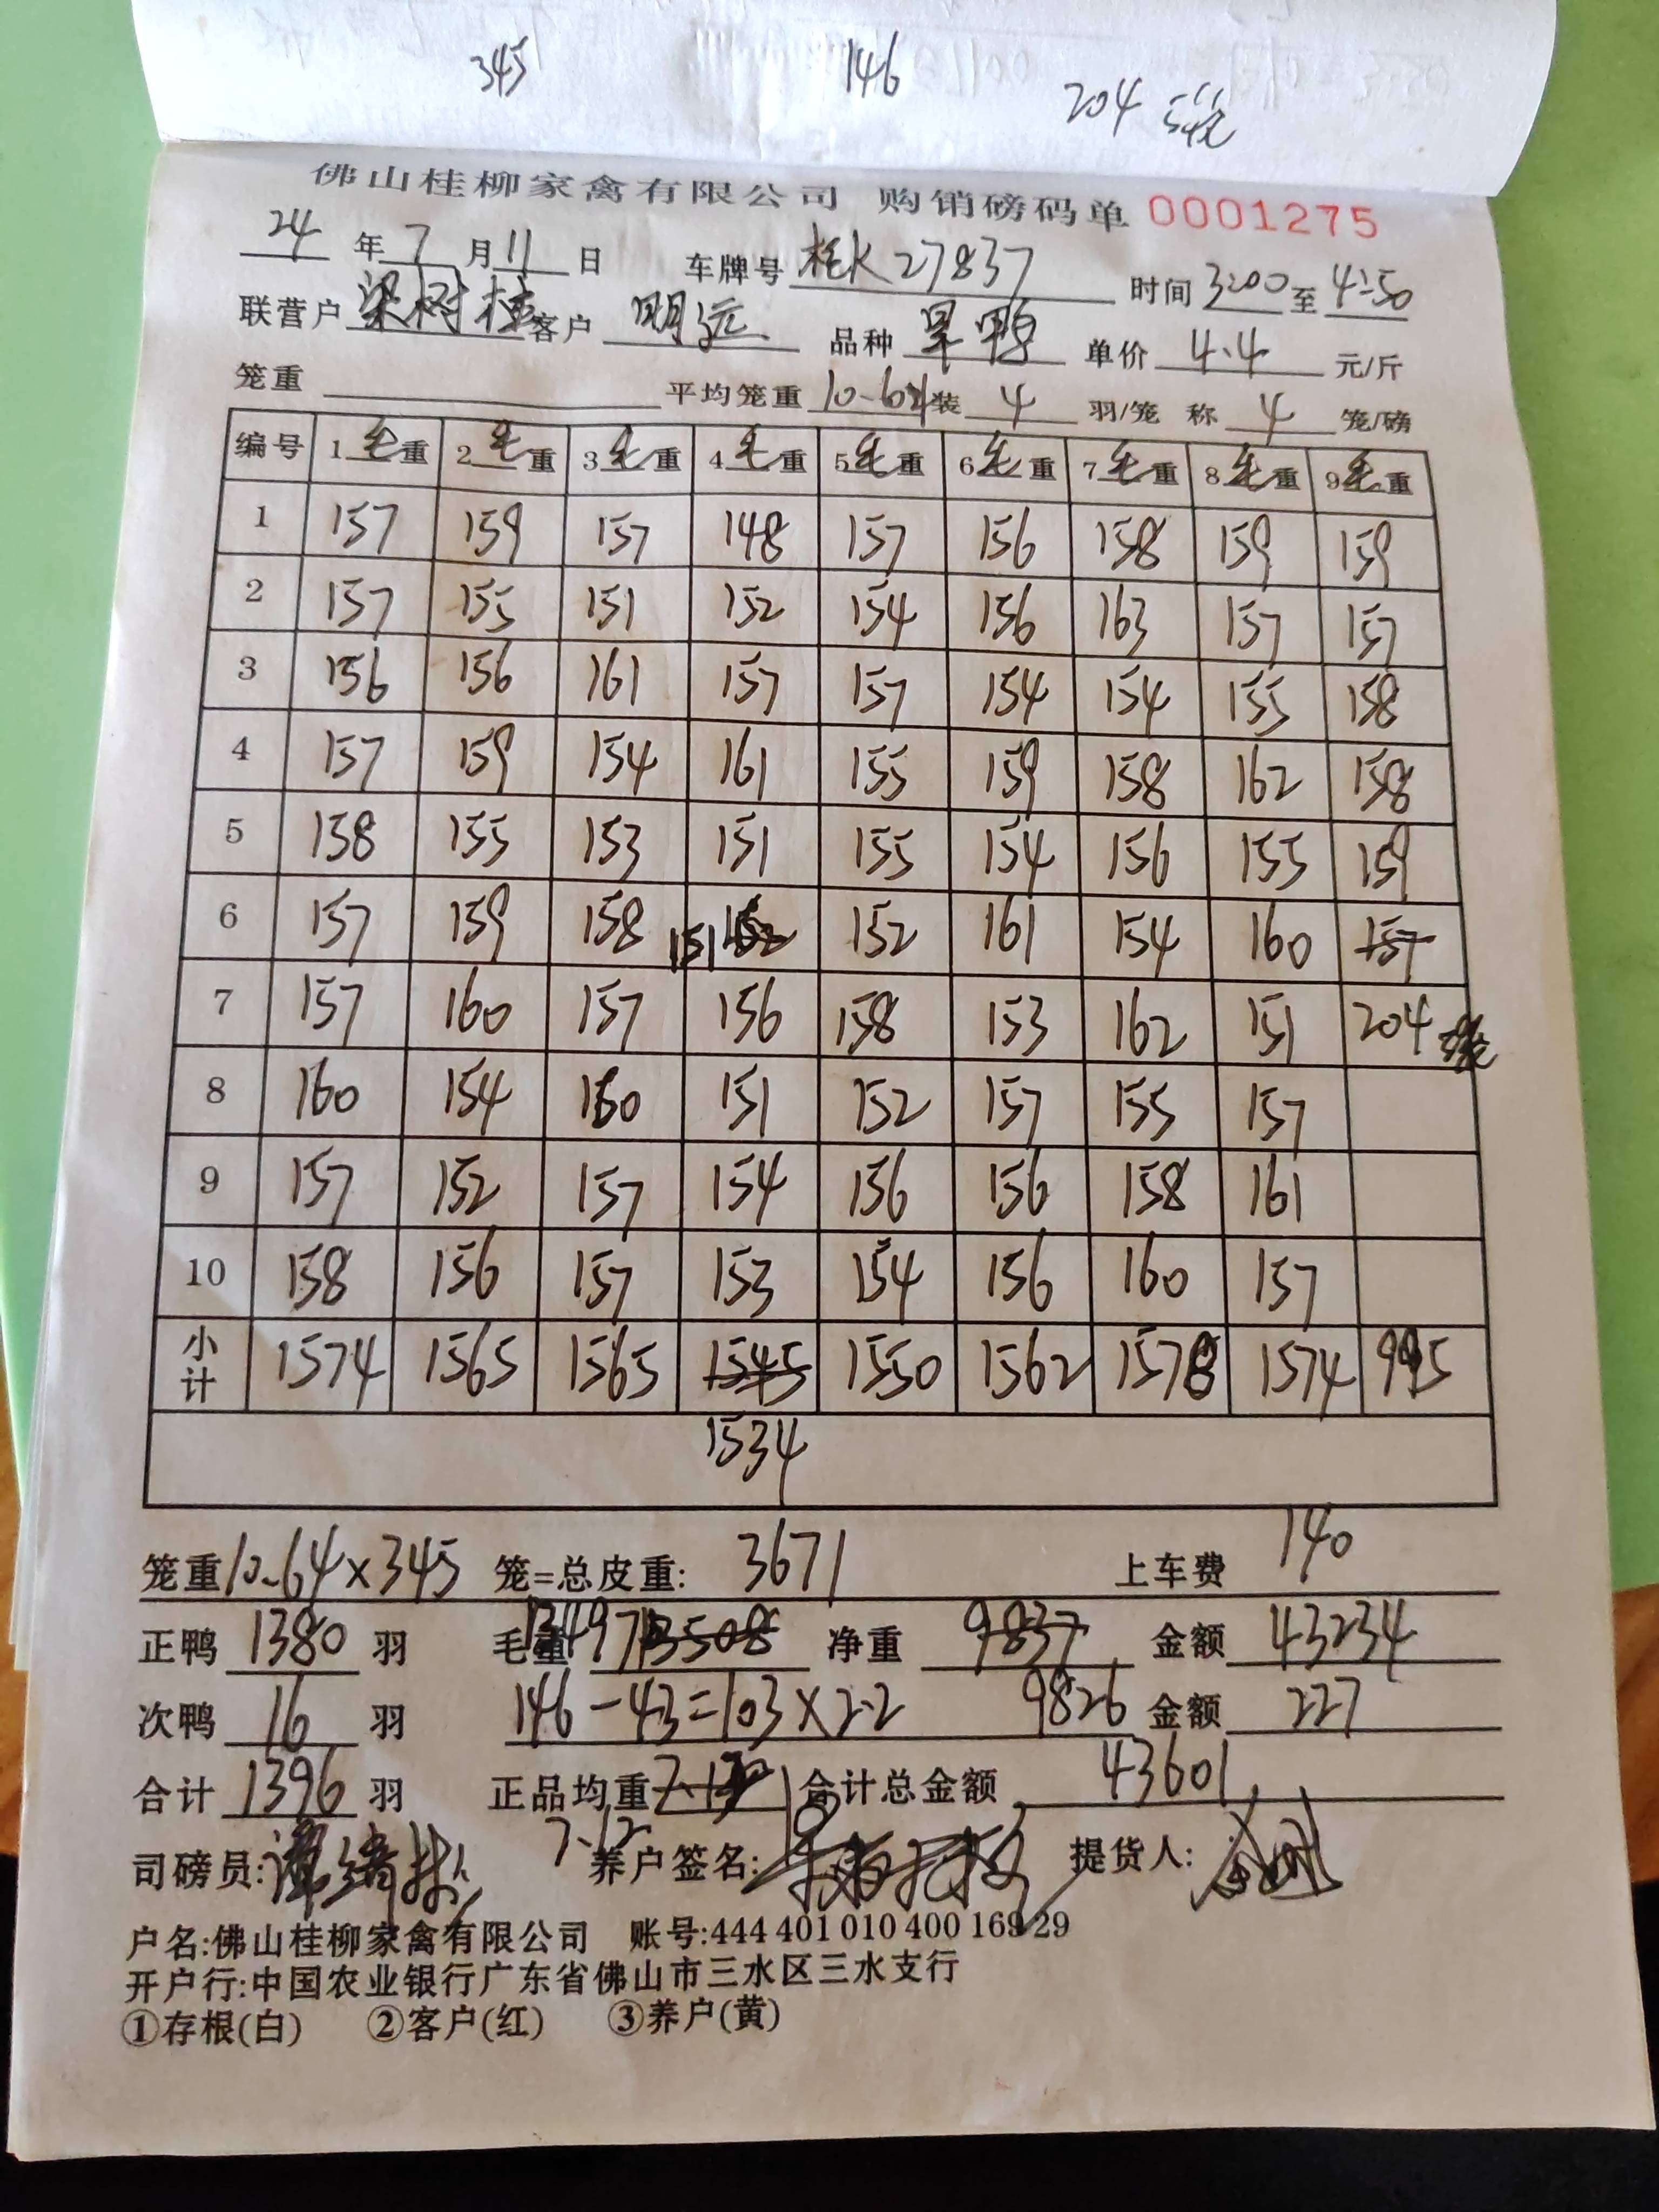 345 146
204 5笼
佛山桂柳家禽有限公司 购销磅码单 0001275
24年7月11日 车牌号 桂K27837 时间3:00至4:50
联营户 梁树桂 客户 明远 品种 旱鸭 单价 4.4 元/斤
笼重 平均笼重 10.64 装 4 羽/笼 称 4 笼/磅
编号 1毛重 2毛重 3毛重 4毛重 5毛重 6毛重 7毛重 8毛重 9毛重
1 157 159 157 148 157 156 158 159 159
2 157 155 151 152 154 156 163 157 157
3 156 156 161 157 157 154 154 155 158
4 157 159 154 161 155 159 158 162 158
5 158 155 153 151 155 154 156 155 159
6 157 159 158 151 152 161 154 160 157
7 157 160 157 156 158 153 162 151 204
8 160 154 160 151 152 157 155 157
9 157 152 157 154 156 156 158 161
10 158 156 157 153 154 156 160 157
小计 1574 1565 1565 1545 1550 1562 1578 1574 995
1534
笼重10.64×345 笼=总皮重: 3671 上车费 140
正鸭 1380 羽 毛重 13497 13508 净重 9837 金额 43234
次鸭 16 羽 146-43=103×2.2 9826 金额 227
合计 1396 羽 正品均重 合计总金额 43601
7.12
司磅员: 养户签名: 提货人:
户名:佛山桂柳家禽有限公司 账号:444 401 010 400 169 29
开户行:中国农业银行广东省佛山市三水区三水支行
①存根(白) ②客户(红) ③养户(黄)